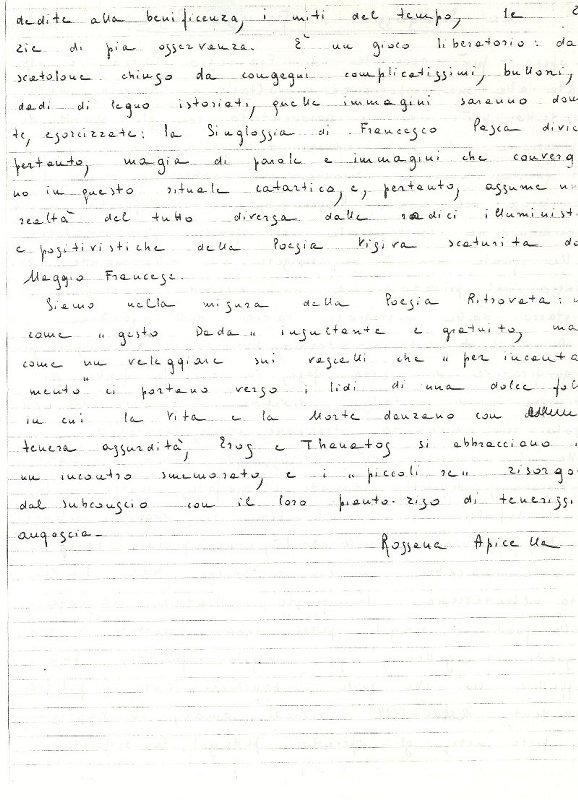 dedite alla beneficenza, i miti del tempo, le
zie di pia osservanza. È un gioco liberatorio: da
scatolone chiuso da congegni complicatissimi, bulloni,
dadi di legno istoriati, quelle immagini saranno
te, esorcizzate: la Singlossia di Francesco Pasca
pertanto, magia di parole e immagini che converg
no in questo rituale catartico, e, pertanto, assume
realtà del tutto diversa dalle radici illuminist
e positivistiche della Poesia Visiva scaturita
Maggio Francese.
Siamo nella misura della Poesia Ritrovata:
come "gesto Dada" insultante e gratuito, ma
come un veleggiare sui vascelli che "per incanta
mento" ci portano verso i lidi di una dolce fol
in cui la Vita e la Morte danzano con
tenera assurdità, Eros e Thanatos si abbracciano
un incontro smemorato, e i "piccoli re" risorgo
dal subconscio con il loro pianto-riso di tenerissi
angoscia-
Rossana Apicella